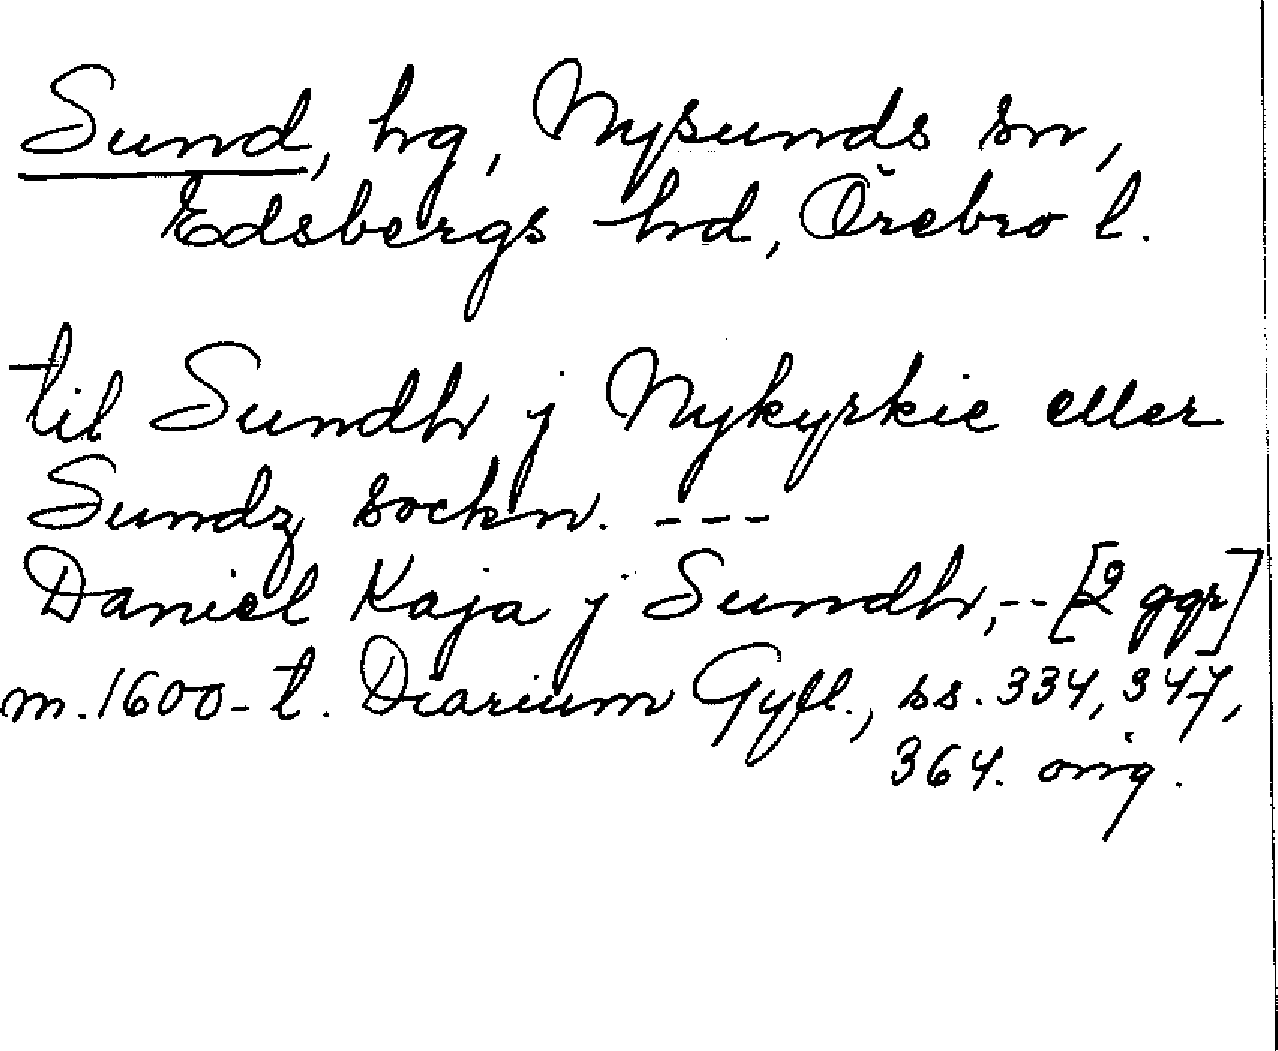 Sund, hg, Nysunds sn,
Edsbergs hd, Örebro l.
til Sundh j Nykyrkie eller
Sundz sockn. ---
Daniel Kaja j Sundh, -- [2 ggr]
m. 1600-t. Diarium Gyll., ss. 334, 347,
364. orig.